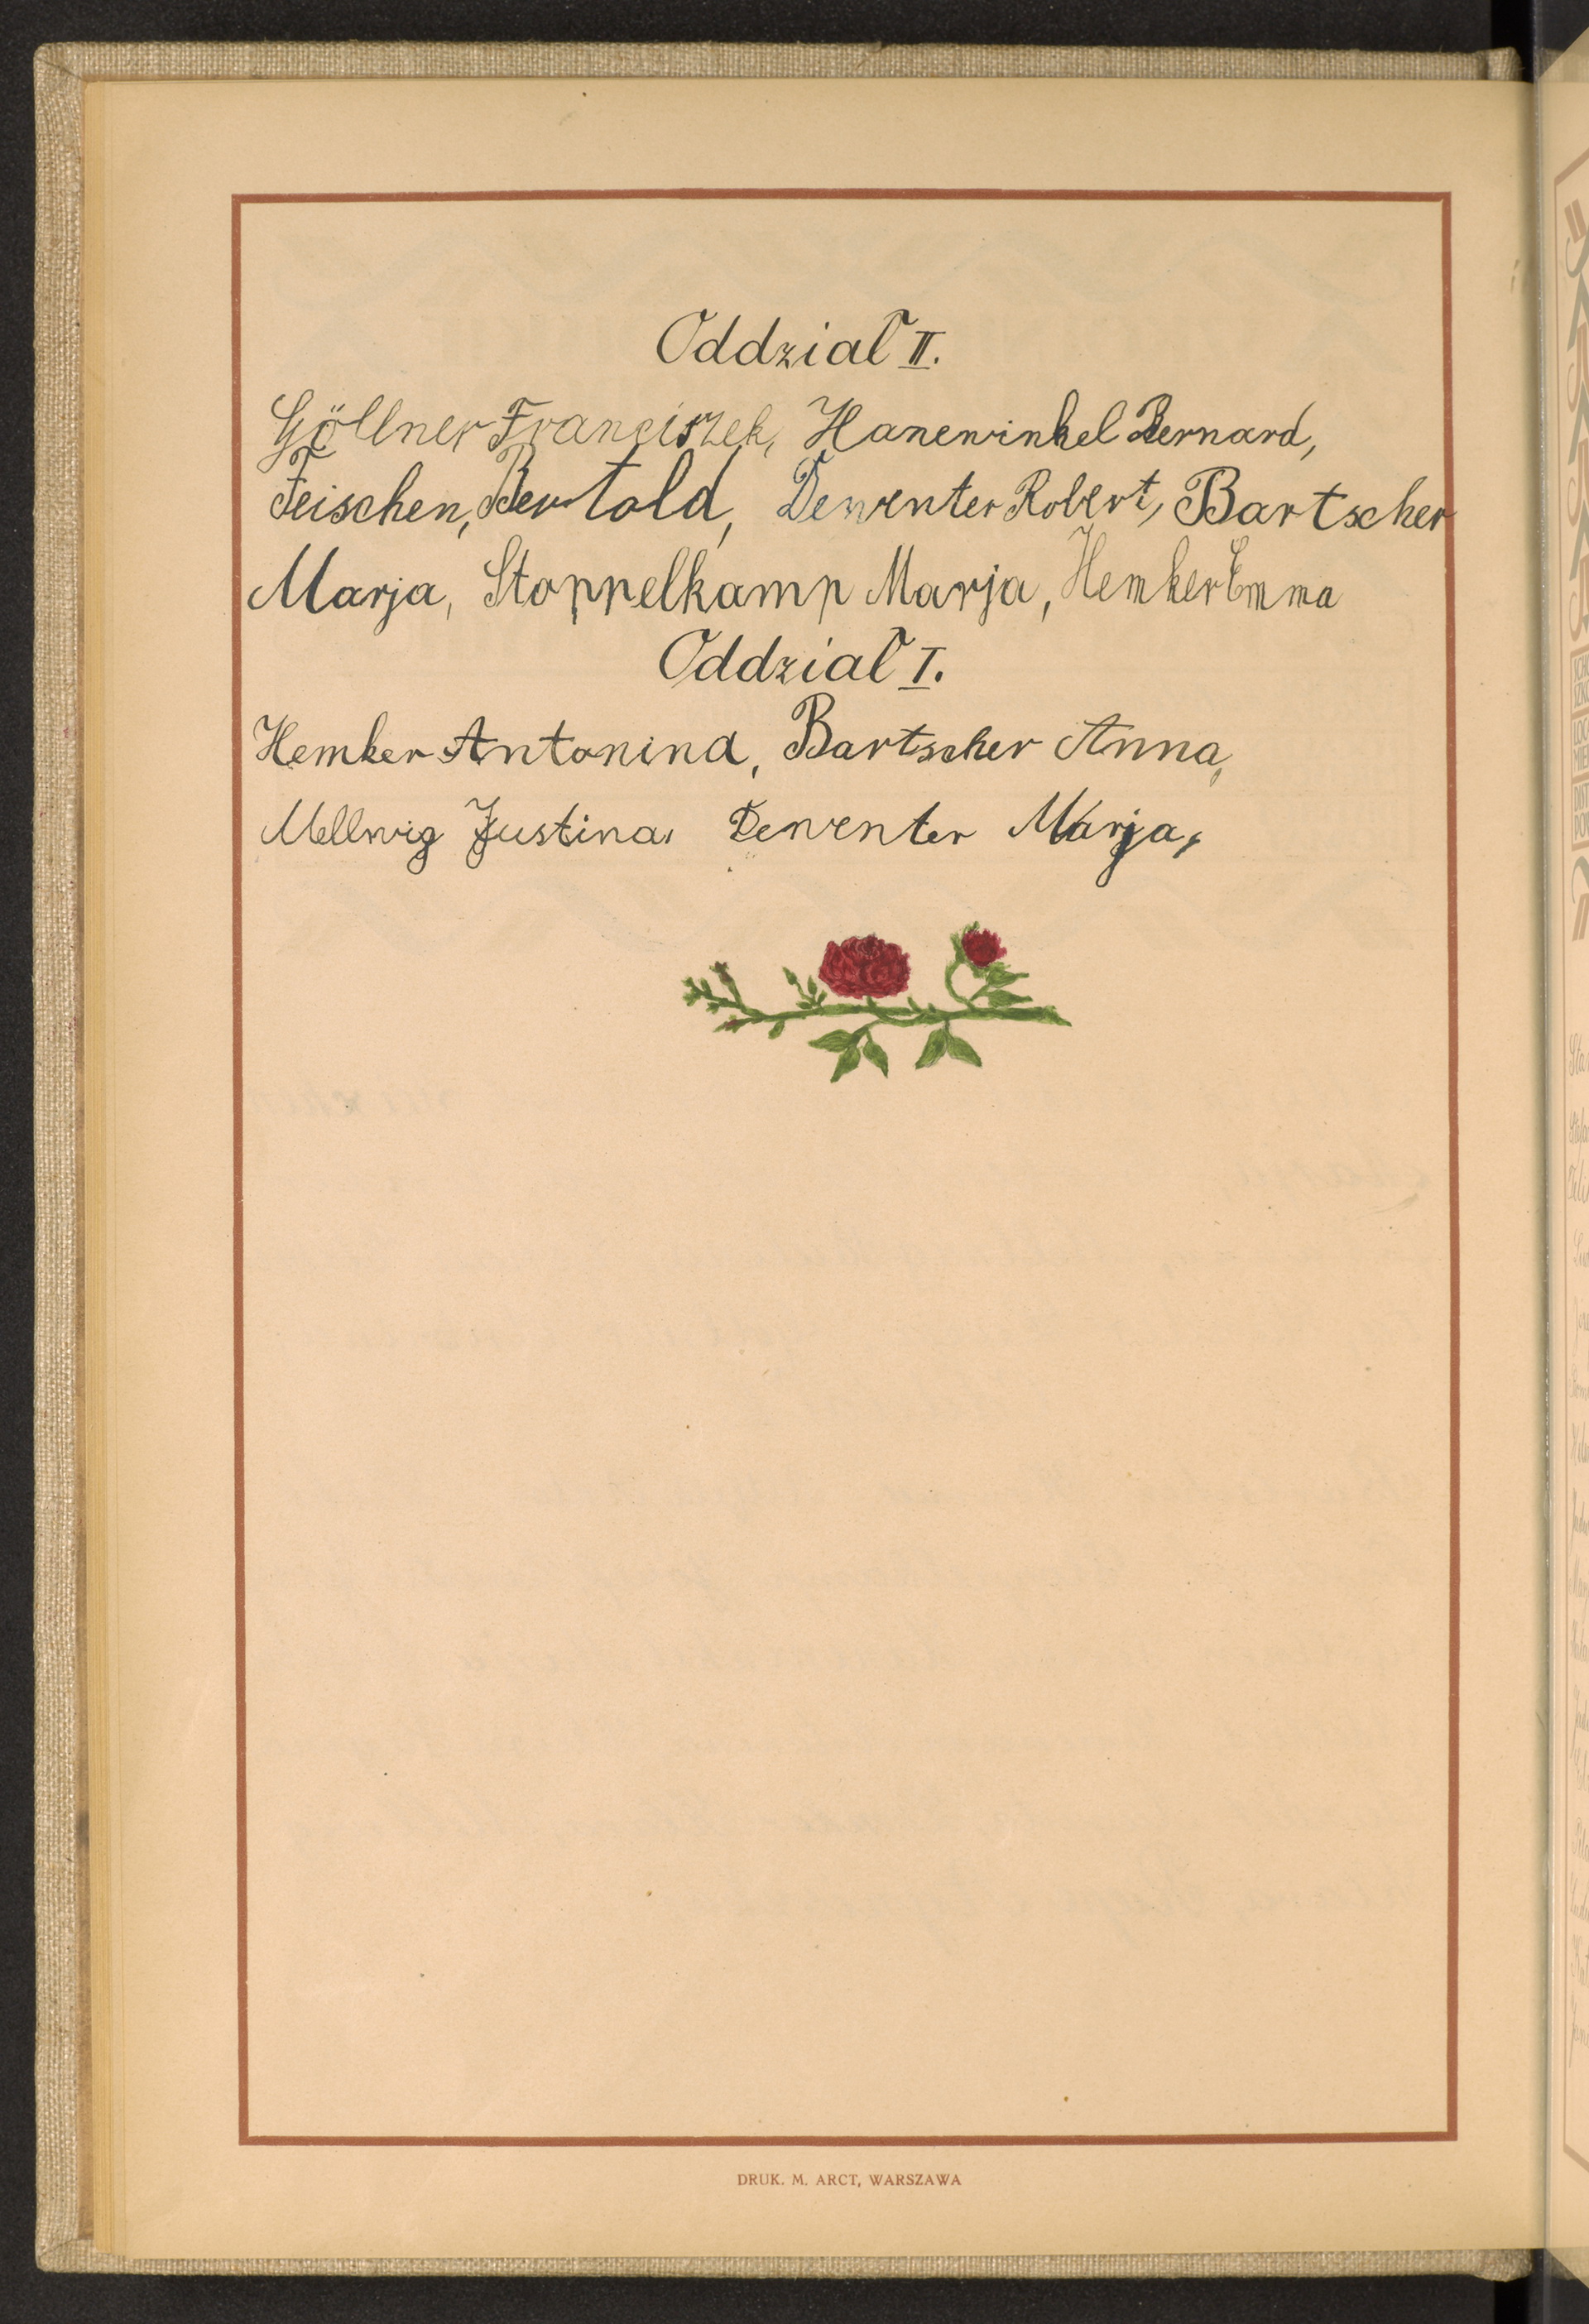 Oddział II.
Göllner Franciszek, Hanewinkel Bernard,
Feischen, Bertold, Dewenter Robert, Bartscher
Marja, Stoppelkamp Marja, Hemker Emma
Oddział I.
Hemker Antonina, Bartscher Anna,
Mellwig Justina, Dewenter Marja,
DRUK. M. ARCT, WARSZAWA